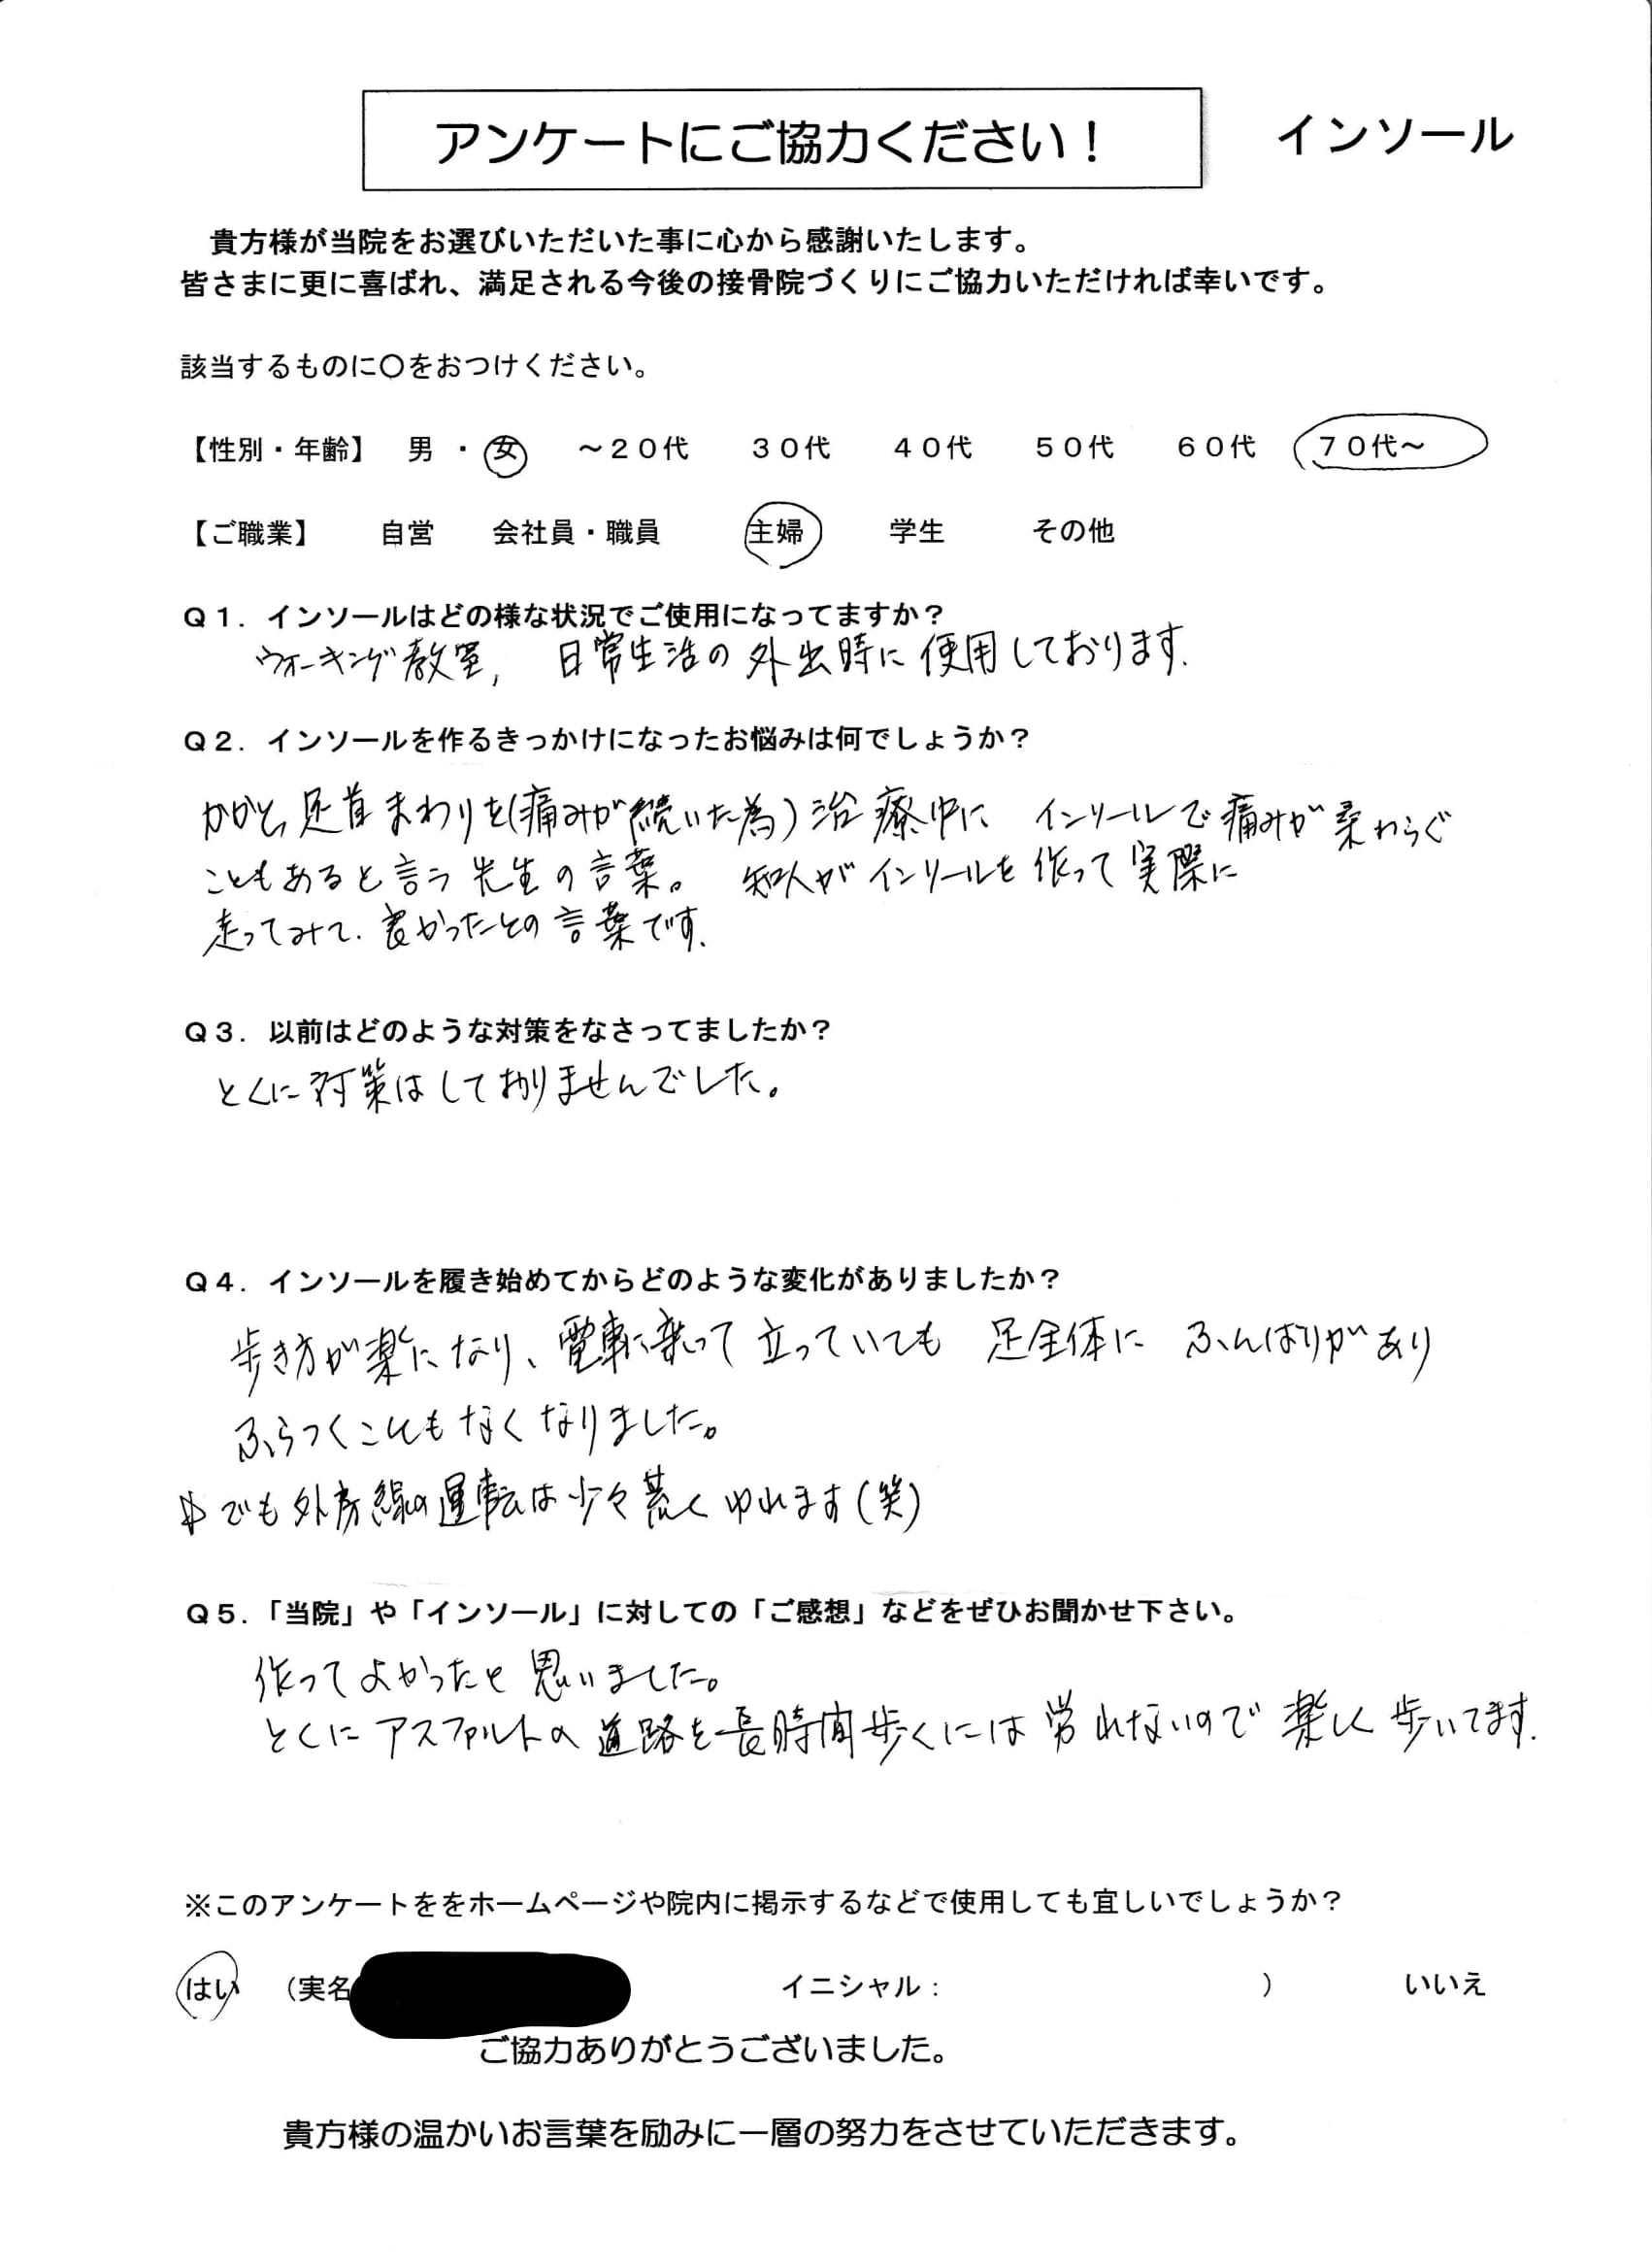 アンケートにご協力ください！　インソール
貴方様が当院をお選びいただいた事に心から感謝いたします。
皆さまに更に喜ばれ、満足される今後の接骨院づくりにご協力いただければ幸いです。
該当するものに〇をおつけください。
【性別・年齢】　男　・　女　～２０代　３０代　４０代　５０代　６０代　７０代～
【ご職業】　自営　会社員・職員　主婦　学生　その他
Ｑ１．インソールはどの様な状況でご使用になってますか？
ウォーキング教室，　日常生活の外出時に使用しております．
Ｑ２．インソールを作るきっかけになったお悩みは何でしょうか？
かかと、足首まわりを（痛みが続いた為）治療中に　インソールで痛みが柔わらぐ
こともあると言う先生の言葉。　知人がインソールを作って実際に
走ってみて．良かったとの言葉です．
Ｑ３．以前はどのような対策をなさってましたか？
とくに対策はしておりませんでした。
Ｑ４．インソールを履き始めてからどのような変化がありましたか？
歩き方が楽になり、電車に乗って立っていても　足全体に　ふんばりがあり
ふらつくこともなくなりました。
でも外房線の運転は少々荒くゆれます（笑）
Ｑ５．「当院」や「インソール」に対しての「ご感想」などをぜひお聞かせ下さい。
作ってよかったと思いました。
とくにアスファルトの道路を長時間歩くには労れないので楽しく歩いてます．
※このアンケートををホームページや院内に掲示するなどで使用しても宜しいでしょうか？
はい　（実名　イニシャル：　）　いいえ
ご協力ありがとうございました。
貴方様の温かいお言葉を励みに一層の努力をさせていただきます。